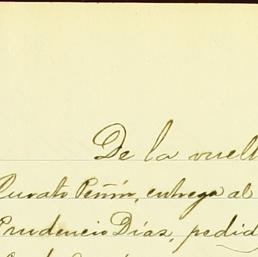 De la vuelt
Curato Peñón, entrega al
Prudencio Días, pedid